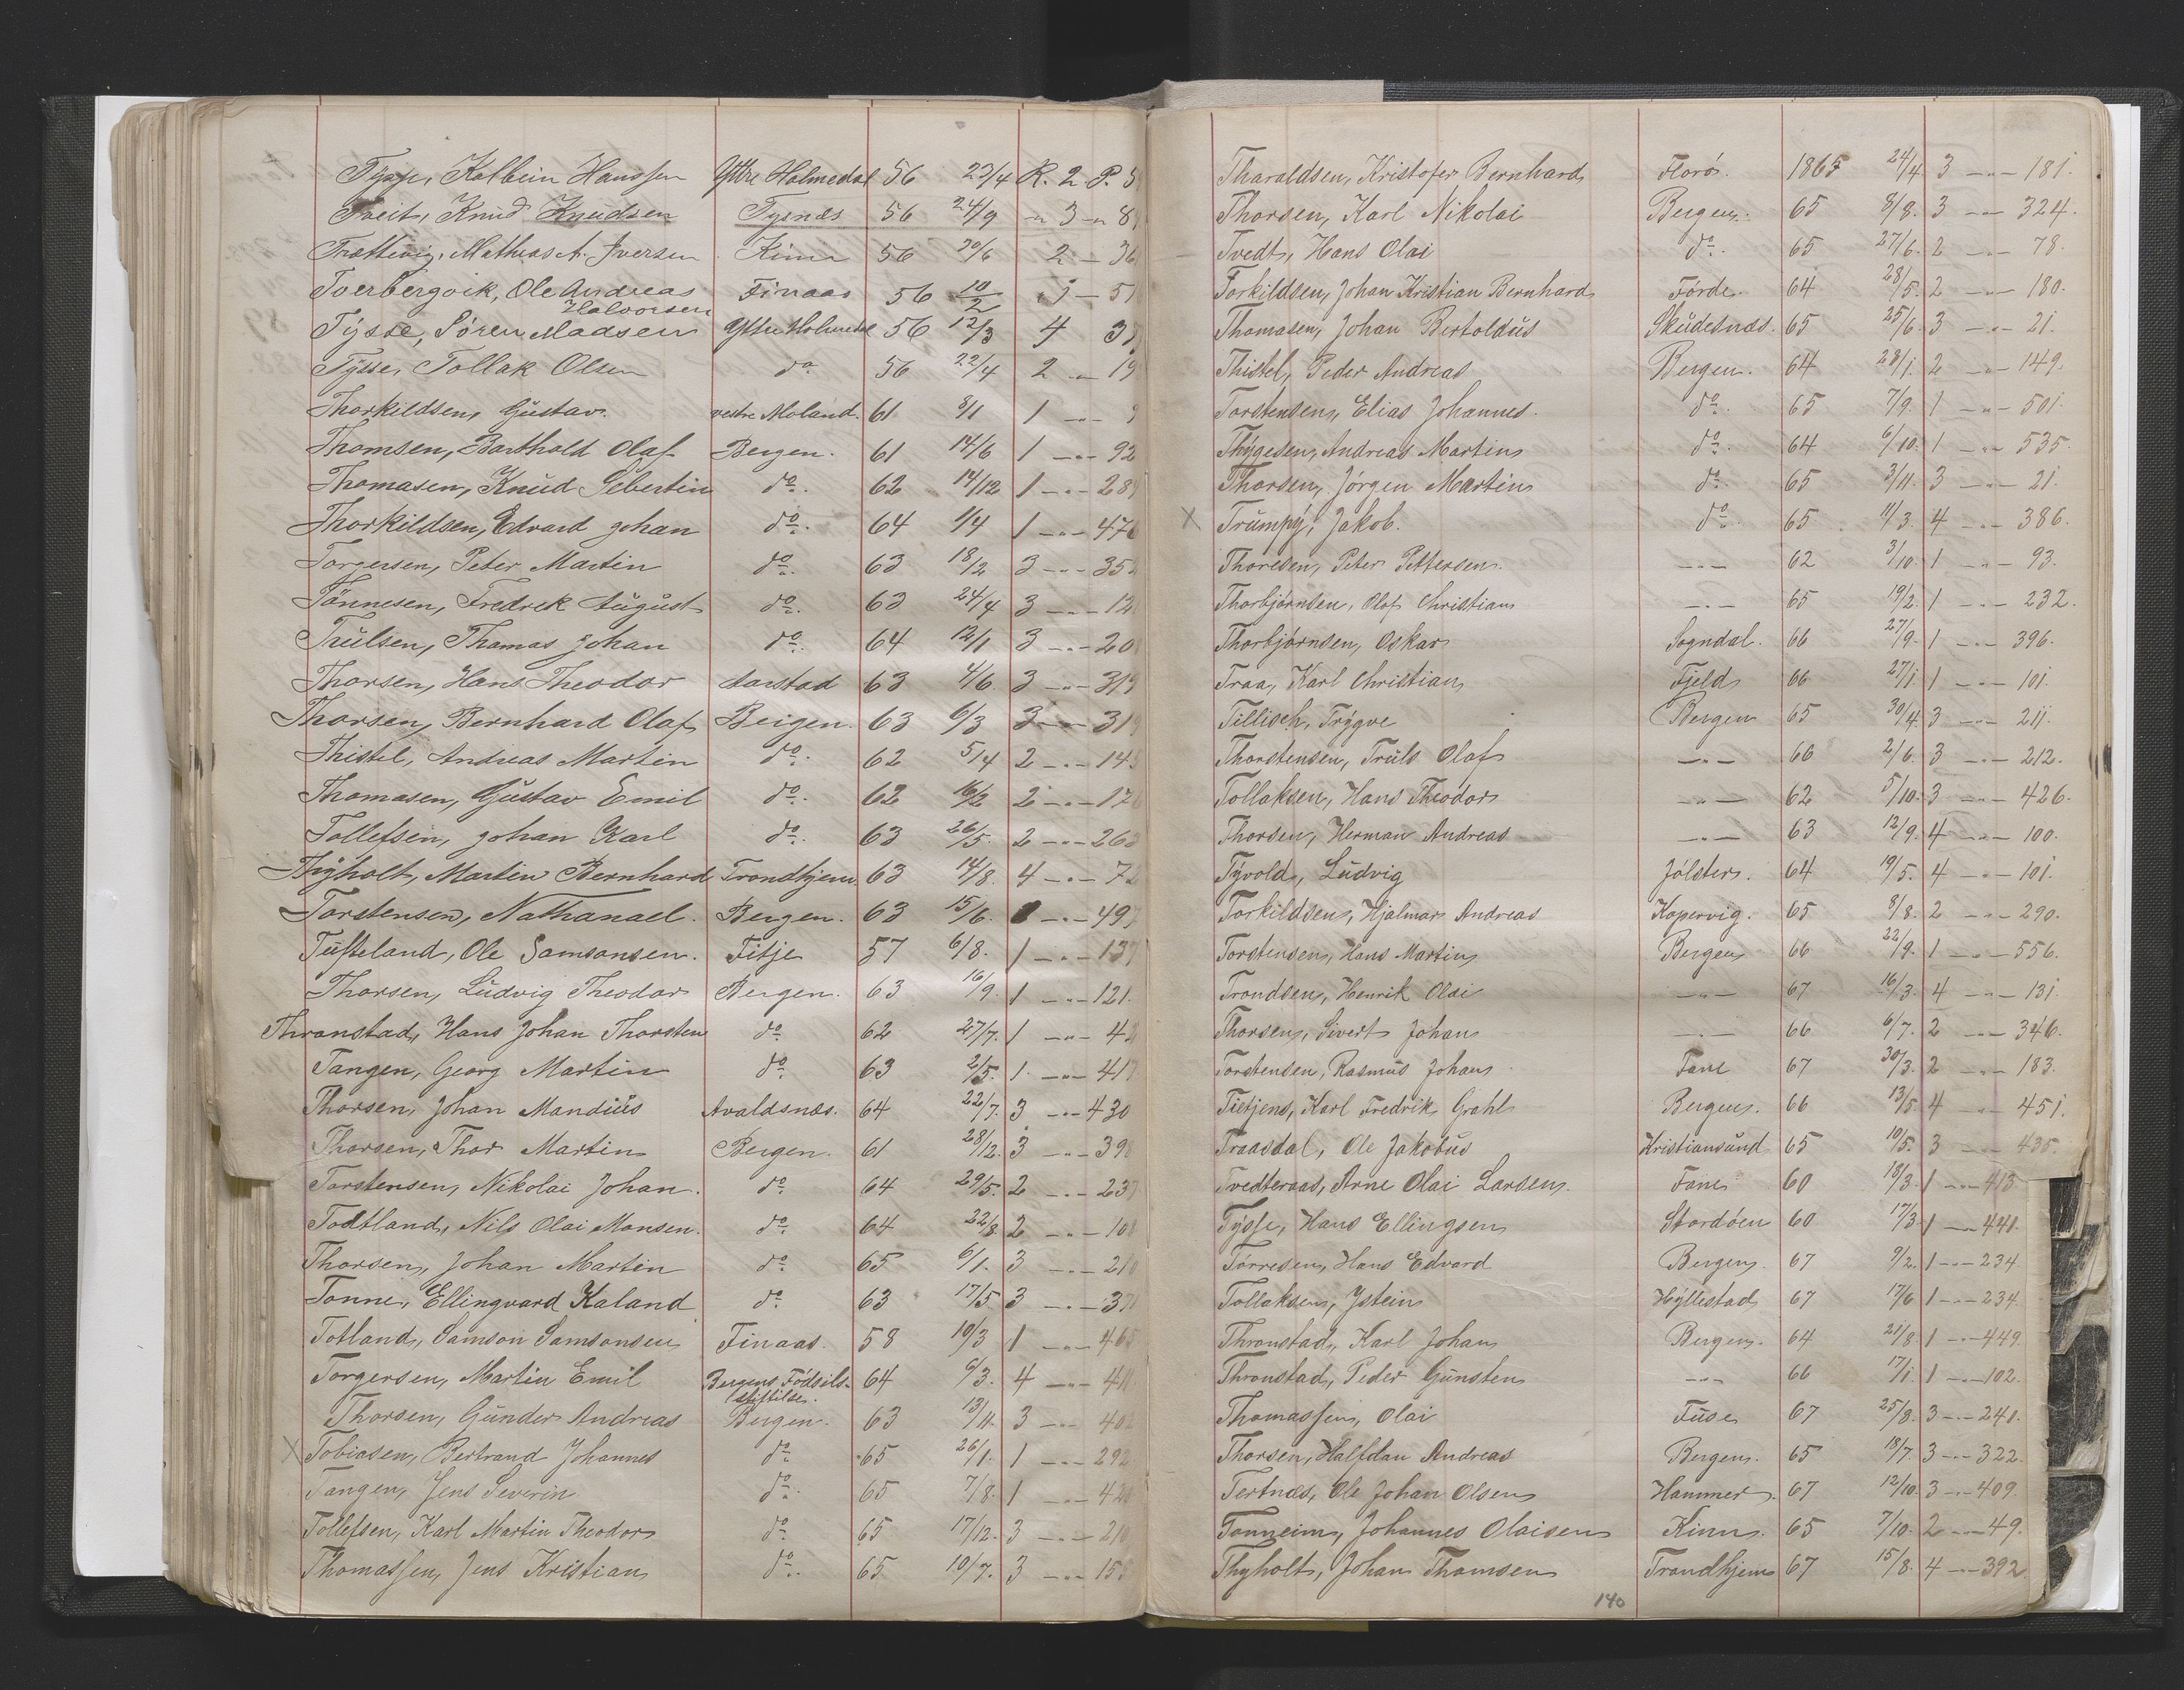 Tysse, Kolbein Hanssen Yttre Holmedal 56 23/4 R. 2 P. 5
Tveit, Knud Knudsen Tysnæs 56 24/9 " 3 " 8
Trættevig, Mathias A. Iversen Kinn 56 30/6 2 — 36
Tverbergvik, Ole Andreas Halvorsen Finaas 56 10/2 5
Tysse, Søren Madsen Yttre Holmedal 56 12/3 4 3
Tysse, Tollak Olsen do 56 22/4 2 — 19
Thorkildsen, Gustav. vestre Moland. 61 8/1 1 -"- 9
Thomsen, Barthold Olaf Bergen. 61 14/6 1 -"- 92
Thomasen, Knud Sebertin do. 62 14/12 1 -"- 28
Thorkildsen, Edvard Johan do. 64 1/4 1 -"- 476
Torgersen, Peter Martin do. 63 18/2 3 -"- 35
Tönnesen, Fredrik August do. 63 24/4 3 -"- 12
Trulsen, Thomas Johan do. 64 12/1 3 -"- 20
Thorsen, Hans Theodor Aarstad 63 4/6 3 -"- 319
Thorsen, Bernhard Olaf Bergen. 63 6/3 3 -"- 319
Thistel, Andreas Martin do. 62 5/4 2 -"- 14
Thomasen, Gustav Emil do. 62 16/2 2 -"- 17
Tollefsen, Johan Karl do. 63 26/5. 2 -"- 263
Thyholt, Martin Bernhard Trondhjem 63 14/8. 4 -"- 7
Torstensen, Nathanael. Bergen. 63 15/6. -"- 497
Tufteland, Ole Samsonsen. Fitje 57 6/8. 1 -"- 137
Thorsen, Ludvig Theodor Bergen. 63 16/9. 1 -"- 121.
Thronstad, Hans Johan Thorsten do 62 27/7. 1 -"- 42
Tangen, Georg Martin do. 63 2/5. 1. -"- 417
Thorsen, Johan Mandius Avaldsnæs. 64 22/7. 3 -"- 430
Thorsen, Thor Martin Bergen. 61 28/12. 3 -"- 39
Torstensen, Nikolai Johan. do. 64 29/5. 2 -"- 237
Todtland, Nils Olai Monsen. do. 64 22/8. 2 -"- 10
Thorsen, Johan Martin do. 65 6/1. 3 -"- 21
Tonne, Ellingvard Kaland do. 63 17/5. 3 -"- 37
Totland, Samson Samsonsen Finaas. 58 10/3 1 -"- 46
Torgersen, Martin Emil Bergens Födsils-stiftelse. 64 6/3. 4 -"- 4
Thorsen, Gunder Andreas Bergen. 63 13/11. 3 -"- 40
X Tobiasen, Bertrand Johannes do 65 26/1. 1 -"- 292
Tangen, Jens Severin do. 65 7/8. 1 -"- 42
Tollefsen, Karl Martin Theodor do 65 17/12. 3 -"- 21
Thomassen, Jens Kristian do. 65 10/7. 3 -"- 15
Tharaldsen, Kristofer Bernhard Florö. 1865 24/4 3 -"- 181.
Thorsen, Karl Nikolai Bergen. 65 8/8. 3 -"- 324.
Tvedt, Hans Olai do. 65 27/6. 2 -"- 78.
Torkildsen, Johan Kristian Bernhard Förde. 64 28/5. 2 -"- 180.
Thomasen, Johan Bertoldus Skudesnæs. 65 25/6. 3 -"- 21.
Thistel, Peder Andreas Bergen. 64 28/1. 2 -"- 149.
Torstensen, Elias Johannes. do. 65 7/9. 1 -"- 501.
Thygesen, Andreas Martin do. 64 6/10. 1 -"- 535.
Thorsen, Jörgen Martin do. 65 3/11. 3 -"- 21.
X Trumpy, Jakob. do. 65. 11/3. 4 -"- 386.
Thoresen, Peter Pettersen. -"- 62 3/10. 1 -"- 93.
Thorbjörnsen, Olaf Christian -"- 65 19/2. 1 -"- 232.
Thorbjörnsen, Oskar Sogndal. 66 27/9. 1 -"- 396.
Traa, Karl Christian Fjeld 66 27/1. 1 -"- 101.
Tillisch, Trygve Bergen 65 30/4. 3 -"- 211.
Thorstensen, Truls Olaf -"- 66 2/6. 3 -"- 212.
Tollaksen, Hans Theodor -"- 62 5/10. 3 -"- 426.
Thorsen, Herman Andreas -"- 63 12/9. 4 -"- 100.
Tyvold, Ludvig Jölster. 64 19/5. 4 -"- 101.
Torkildsen, Hjalmar Andreas Kopervig. 65 8/8. 2 -"- 290.
Torstensen, Hans Martin Bergen 66 22/9. 1 -"- 556.
Trondsen, Henrik Olai -"- 67 16/3. 4 -"- 131.
Thorsen, Sivert Johan -"- 66 6/7. 2 -"- 346.
Torstensen, Rasmus Johan Fane 67 30/3. 2 -"- 183.
Tietjens, Karl Fredrik Grahl Bergen. 66 13/5. 4 -"- 451.
Traasdal, Ole Jakobus Kristiansund 65 10/5. 3 -"- 435.
Tvedteraas, Arne Olai Larsen. Fane 60 18/3. 1 -"- 413
Tysse, Hans Ellingsen Stordöen 60 17/3. 1 -"- 441.
Törresen, Hans Edvard Bergen. 67 9/2. 1 -"- 234
Tollaksen, Ystein Hyllestad 67 17/6 1 -"- 234.
Thronstad, Karl Johan Bergen. 64 21/8. 1 -"- 449.
Thronstad, Peder Gunsten -"- 66 17/1. 1 -"- 102.
Thomassen, Olai Fuse 67 25/8. 3 -"- 241.
Thorsen, Halfdan Andreas Bergen. 65 18/7. 3 -"- 322.
Tertnæs, Ole Johan Olsen Hammer. 67 12/10. 3 -"- 409.
Tonheim, Johannes Olaisen Kinn. 65 7/10. 2 -"- 49.
Thyholt, Johan Thomsen Trondhjem 67 15/8. 4 -"- 392
140